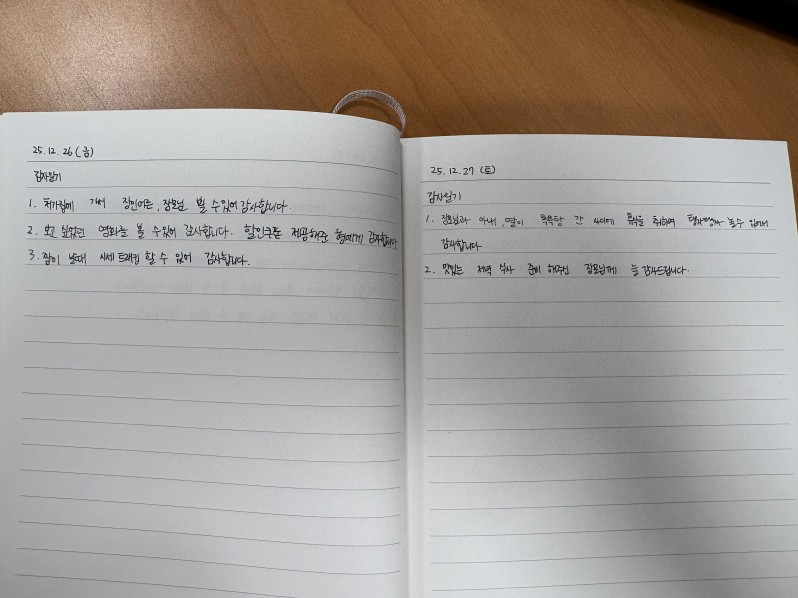 25.12.26(금)
감사일기
1. 처가집에 가서 장인어른, 장모님 뵐 수 있어 감사합니다.
2. 보고 싶었던 영화를 볼 수 있어 감사합니다. 할인쿠폰 제공해준 형에게 감사합니다
3. 짬이 날때 시세 트래킹 할 수 있어 감사합니다.
25.12.27 (토)
감사일기
1. 장모님과 아내, 딸이 목욕탕 간 사이에 휴식을 취하며 놀 수 있어서
감사합니다
2. 맛있는 저녁 식사 준비 해주신 장모님께 늘 감사드립니다.